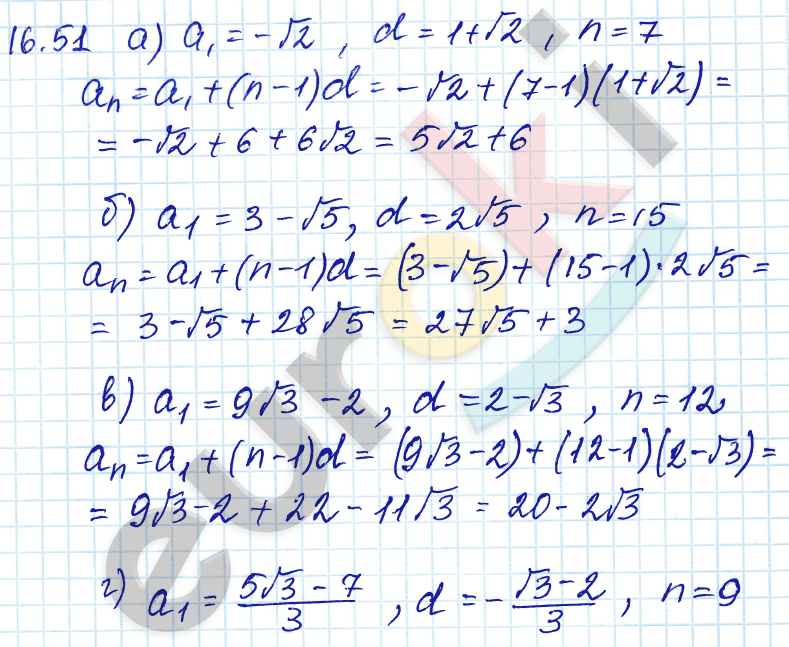 16.51 а) a₁ = -√2 , d = 1+√2 , n = 7
aₙ = a₁ + (n-1)d = -√2 + (7-1)(1+√2) =
= -√2 + 6 + 6√2 = 5√2 + 6
б) a₁ = 3 - √5, d = 2√5 , n = 15
aₙ = a₁ + (n-1)d = (3-√5) + (15-1)·2√5 =
= 3 - √5 + 28√5 = 27√5 + 3
в) a₁ = 9√3 - 2 , d = 2-√3 , n = 12,
aₙ = a₁ + (n-1)d = (9√3-2) + (12-1)(2-√3) =
= 9√3 - 2 + 22 - 11√3 = 20 - 2√3
г) a₁ = (5√3 - 7)/3 , d = -(√3 - 2)/3 , n = 9
euroki